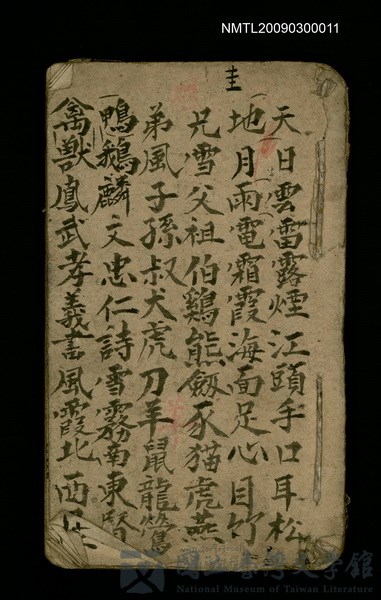 NMTL20090300011
圭
天日雲雷露煙江頭手口耳松
地月雨電霜霞海面足心目竹
兄雪父祖伯鷄熊劔豕猫虎燕
弟風子孫叔犬虎刀羊鼠龍鶯
鴨鵝麟文忠仁詩雪霧南東賢
禽獸鳳武孝義書風霞北西
國立臺灣文學館
National Museum of Taiwan Literature